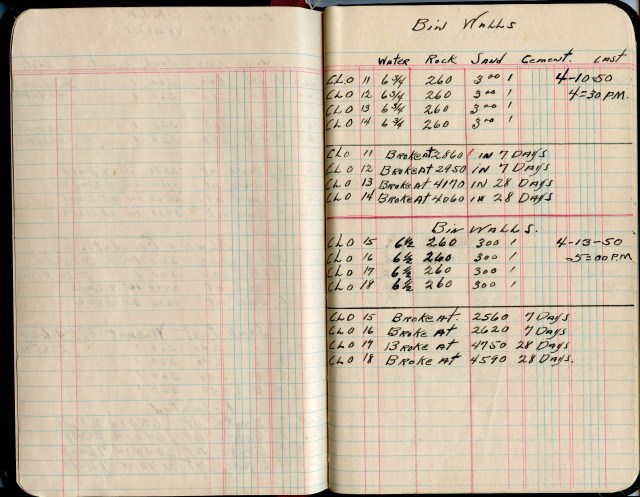 Bin Walls
Water Rock Sand Cement. Cast
CLO 11 6 3/4 260 3°° 1 4-10-50
CLO 12 6 3/4 260 3°° 1 4=30 P.M.
CLO 13 6 3/4 260 3°° 1
CLO 14 6 3/4 260 3°° 1
CLO 11 Broke At 2860 IN 7 Days
CLO 12 Broke At 2950 IN 7 Days
CLO 13 Broke At 4170 IN 28 Days
CLO 14 Broke At 4060 IN 28 Days
Bin Walls.
CLO 15 6 1/2 260 300 1 4-13-50
CLO 16 6 1/2 260 300 1 5=00 P.M
CLO 17 6 1/2 260 300 1
CLO 18 6 1/2 260 300 1
CLO 15 Broke At. 2560 7 Days
CLO 16 Broke At 2620 7 Days
CLO 17 Broke At 4750 28 Days
CLO 18 Broke At 4590 28 Days.